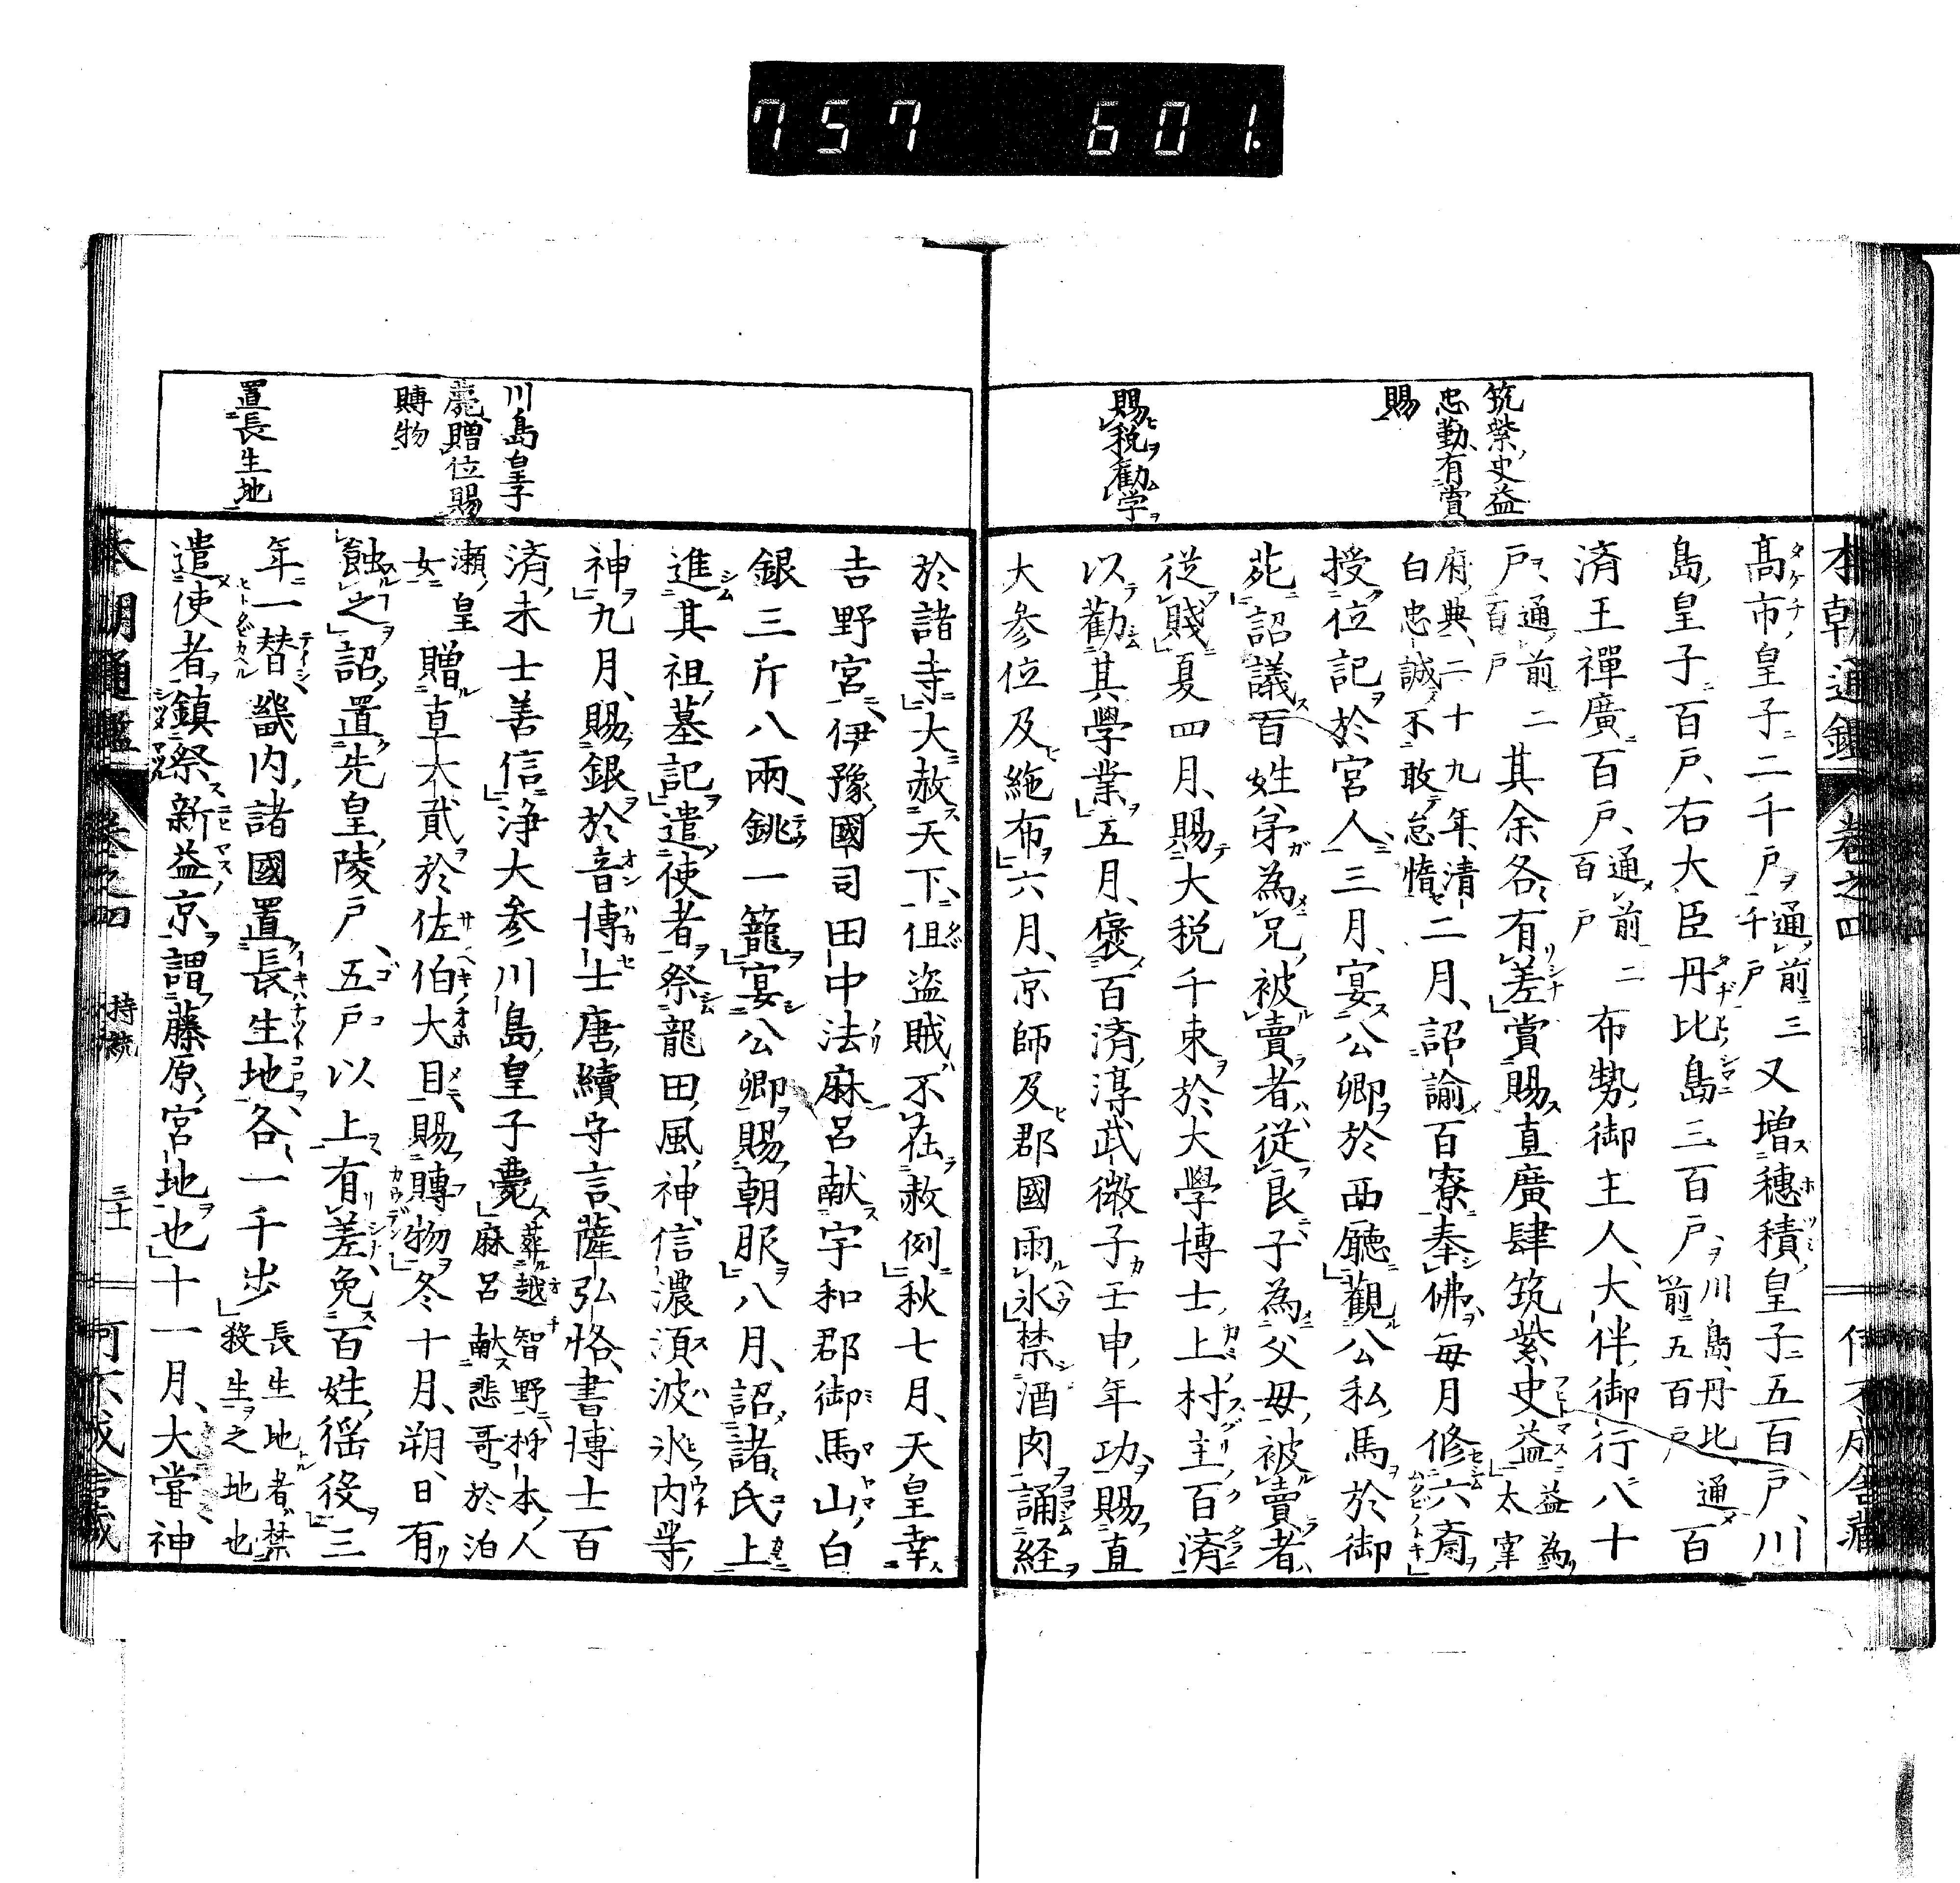 757 601.
本朝通鑑 卷之四
筑紫史益
忠勤有賞
賜
賜税勸学
高市皇子二千戸通前三千戸又増穂積皇子五百戸川
島皇子百戸右大臣丹比島三百戸川島丹比通前五百戸百
済王禪廣百戸通前二百戸布勢御主人大伴御行八十
戸通前二百戸其余各有差賞賜直廣肆筑紫史益益為太宰
府典二十九年清白忠誠不敢怠惰二月詔諭百寮奉佛毎月修六斎
授位記於宮人三月宴公卿於西廳觀公私馬於御
苑詔議百姓弟為兄被賣者從良子為父母被賣者
從賤夏四月賜大税千束於大學博士上村主百済
以勸其學業五月褒百済淳武微子壬申年功賜直
大参位及絁布六月京師及郡國雨氷禁酒肉誦経
川島皇子
薨贈位賜
賻物
置長生地
於諸寺大赦天下但盗賊不在赦例秋七月天皇幸
吉野宮伊豫國司田中法麻呂献宇和郡御馬山白
銀三斤八兩銚一籠宴公卿賜朝服八月詔諸氏上
進其祖墓記遣使者祭龍田風神信濃須波水内等
神九月賜銀於音博士唐續守言薩弘恪書博士百
済末士善信浄大参川島皇子薨葬越智野柿本人麻呂献悲哥於泊
瀬皇女贈直大貳於佐伯大目賜賻物冬十月朔日有
蝕之詔置先皇陵戸五戸以上有差免百姓徭役三
年一替畿内諸國置長生地各一千歩長生地者禁殺生之地也
遣使者鎮祭新益京謂藤原宮地也十一月大嘗神
本朝通鑑 卷之四 持統 三十